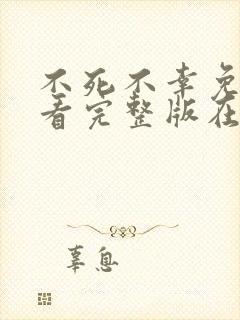 不死不幸免
看完整版在
辜息